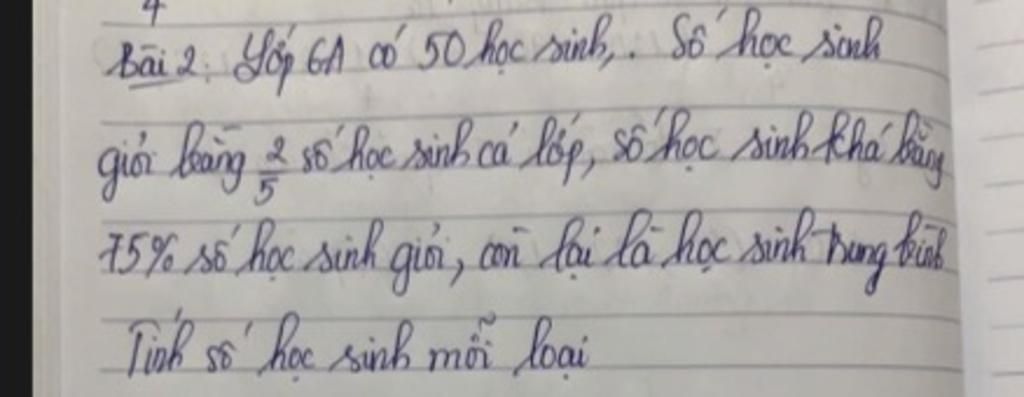 4
Bài 2: Lớp 6A có 50 học sinh,. Số học sinh
giỏi bằng 2/5 số học sinh cả lớp, số học sinh khá bằng
75% số học sinh giỏi, còn lại là học sinh trung bình
Tính số học sinh mỗi loại